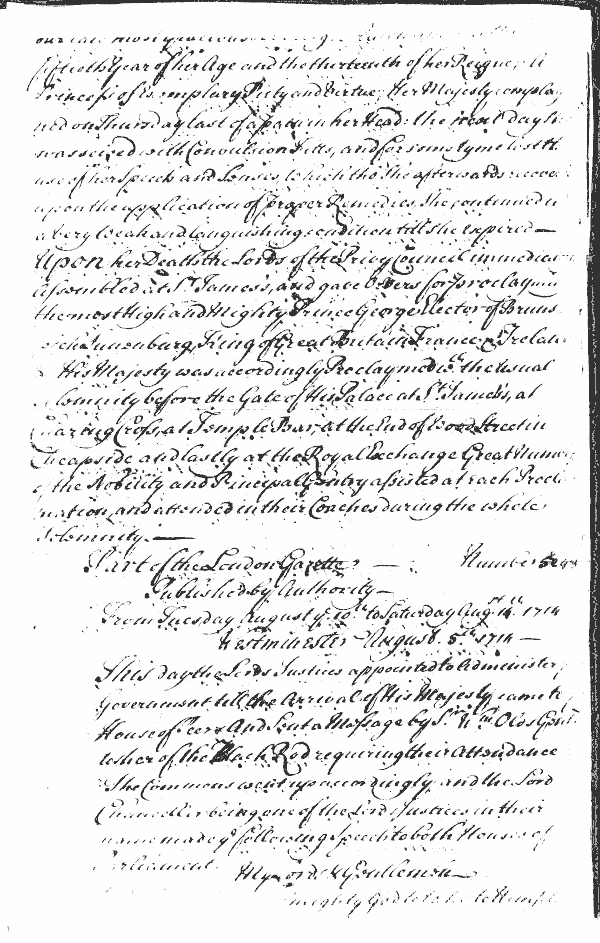 our late most gracious
fiftieth Year of her Age and the thirteenth of her Reigne; A
Princess of Exemplary Piety and Virtue. Her Majesty complay
ned on Thursday last of a pain in her Head: the next day
was seized with Convulsion Fitts, and for some tyme lost th
use of her Speech and Senses, which tho' she afterwards recove
upon the application of proper Remedies She continued in
a very Weak and languishing condition till she expired —
Upon her Death the Lords of the Privy Council immediat
Assembled at St. James's, and gave Orders for Proclaymin
the most High and Mighty Prince George Elector of Bruns
Lunenburg, King of Great Britain France & Ireland
His Majesty was accordingly Proclaymed wth. the usual
Solemnity before the Gate of His Palace at St. James's, at
Charing Cross, at Temple Bar, at the End of Wood Street in
Cheapside and lastly at the Royal Exchange Great Num
of the Nobility and Principal Gentry assisted at each Procla
mation, and attended in their Coaches during the whole
Solemnity. —
Part of the London Gazette — Number
Published by Authority —
From Tuesday August ye. 10th. to Saturday Aug. 14th. 1714
Westminster August. 5th. 1714 —
This day the Lords Justices appointed to Administer
Government till the Arrival of His Majesty came to
House of Peers And Sent a Message by Sr. Wm. Olds Gent.
Usher of the Black Rod requiring their Attendance
The Commons went up accordingly, and the Lord
Chancellor being one of the Lords Justices in their
name made ye. following Speech to both Houses of
Parliament. My Lords & Gentlemen —
mighty God to